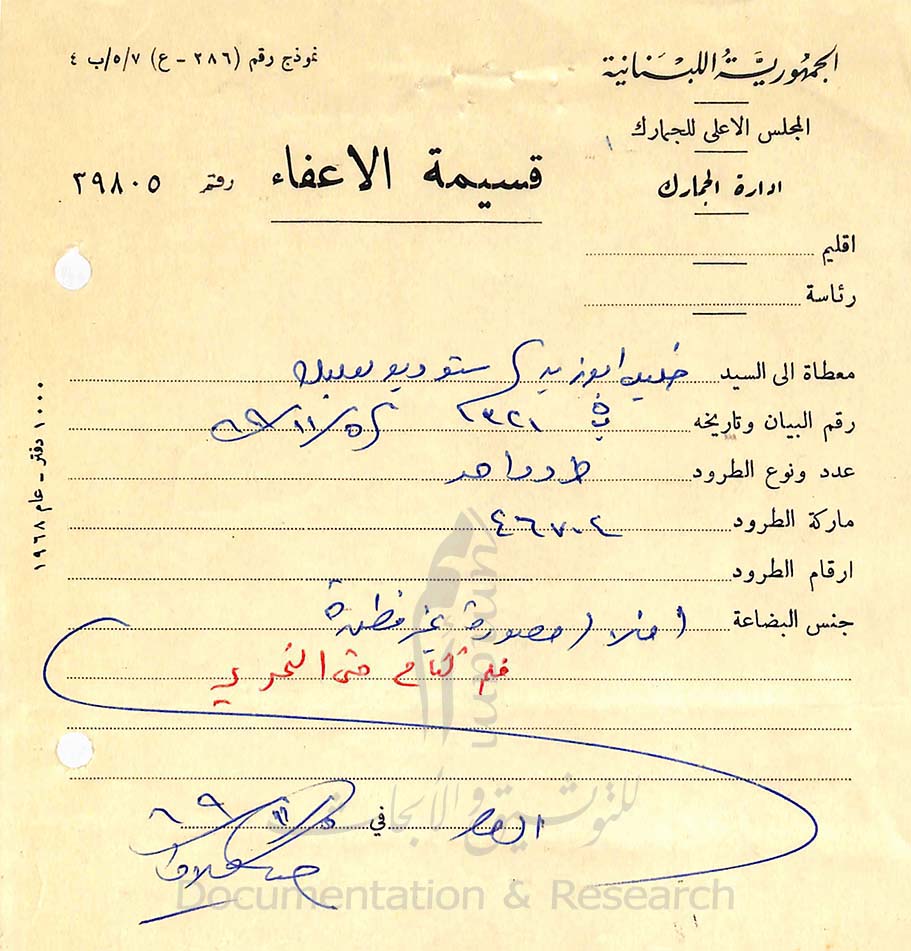 الجمهورية اللبنانية
نموذج رقم (٢٨٦ - ع) ٥/٧/ب ٤
المجلس الاعلى للجمارك
ادارة الجمارك
قسيمة الاعفاء رقم ٣٩٨٠٥
اقليم
رئاسة
معطاة الى السيد خليل ابو زيد / ستوديو بعلبك
رقم البيان وتاريخه ٢٣٢١
عدد ونوع الطرود طرد واحد
ماركة الطرود ٤٦٧٠٤
ارقام الطرود
جنس البضاعة افلام مصورة غير مظهرة
فلم كفاح حتى التحرير
في
١٠٠٠ دفتر - عام ١٩٦٨
للتوثيق والأبحاث
umam
Documentation & Research